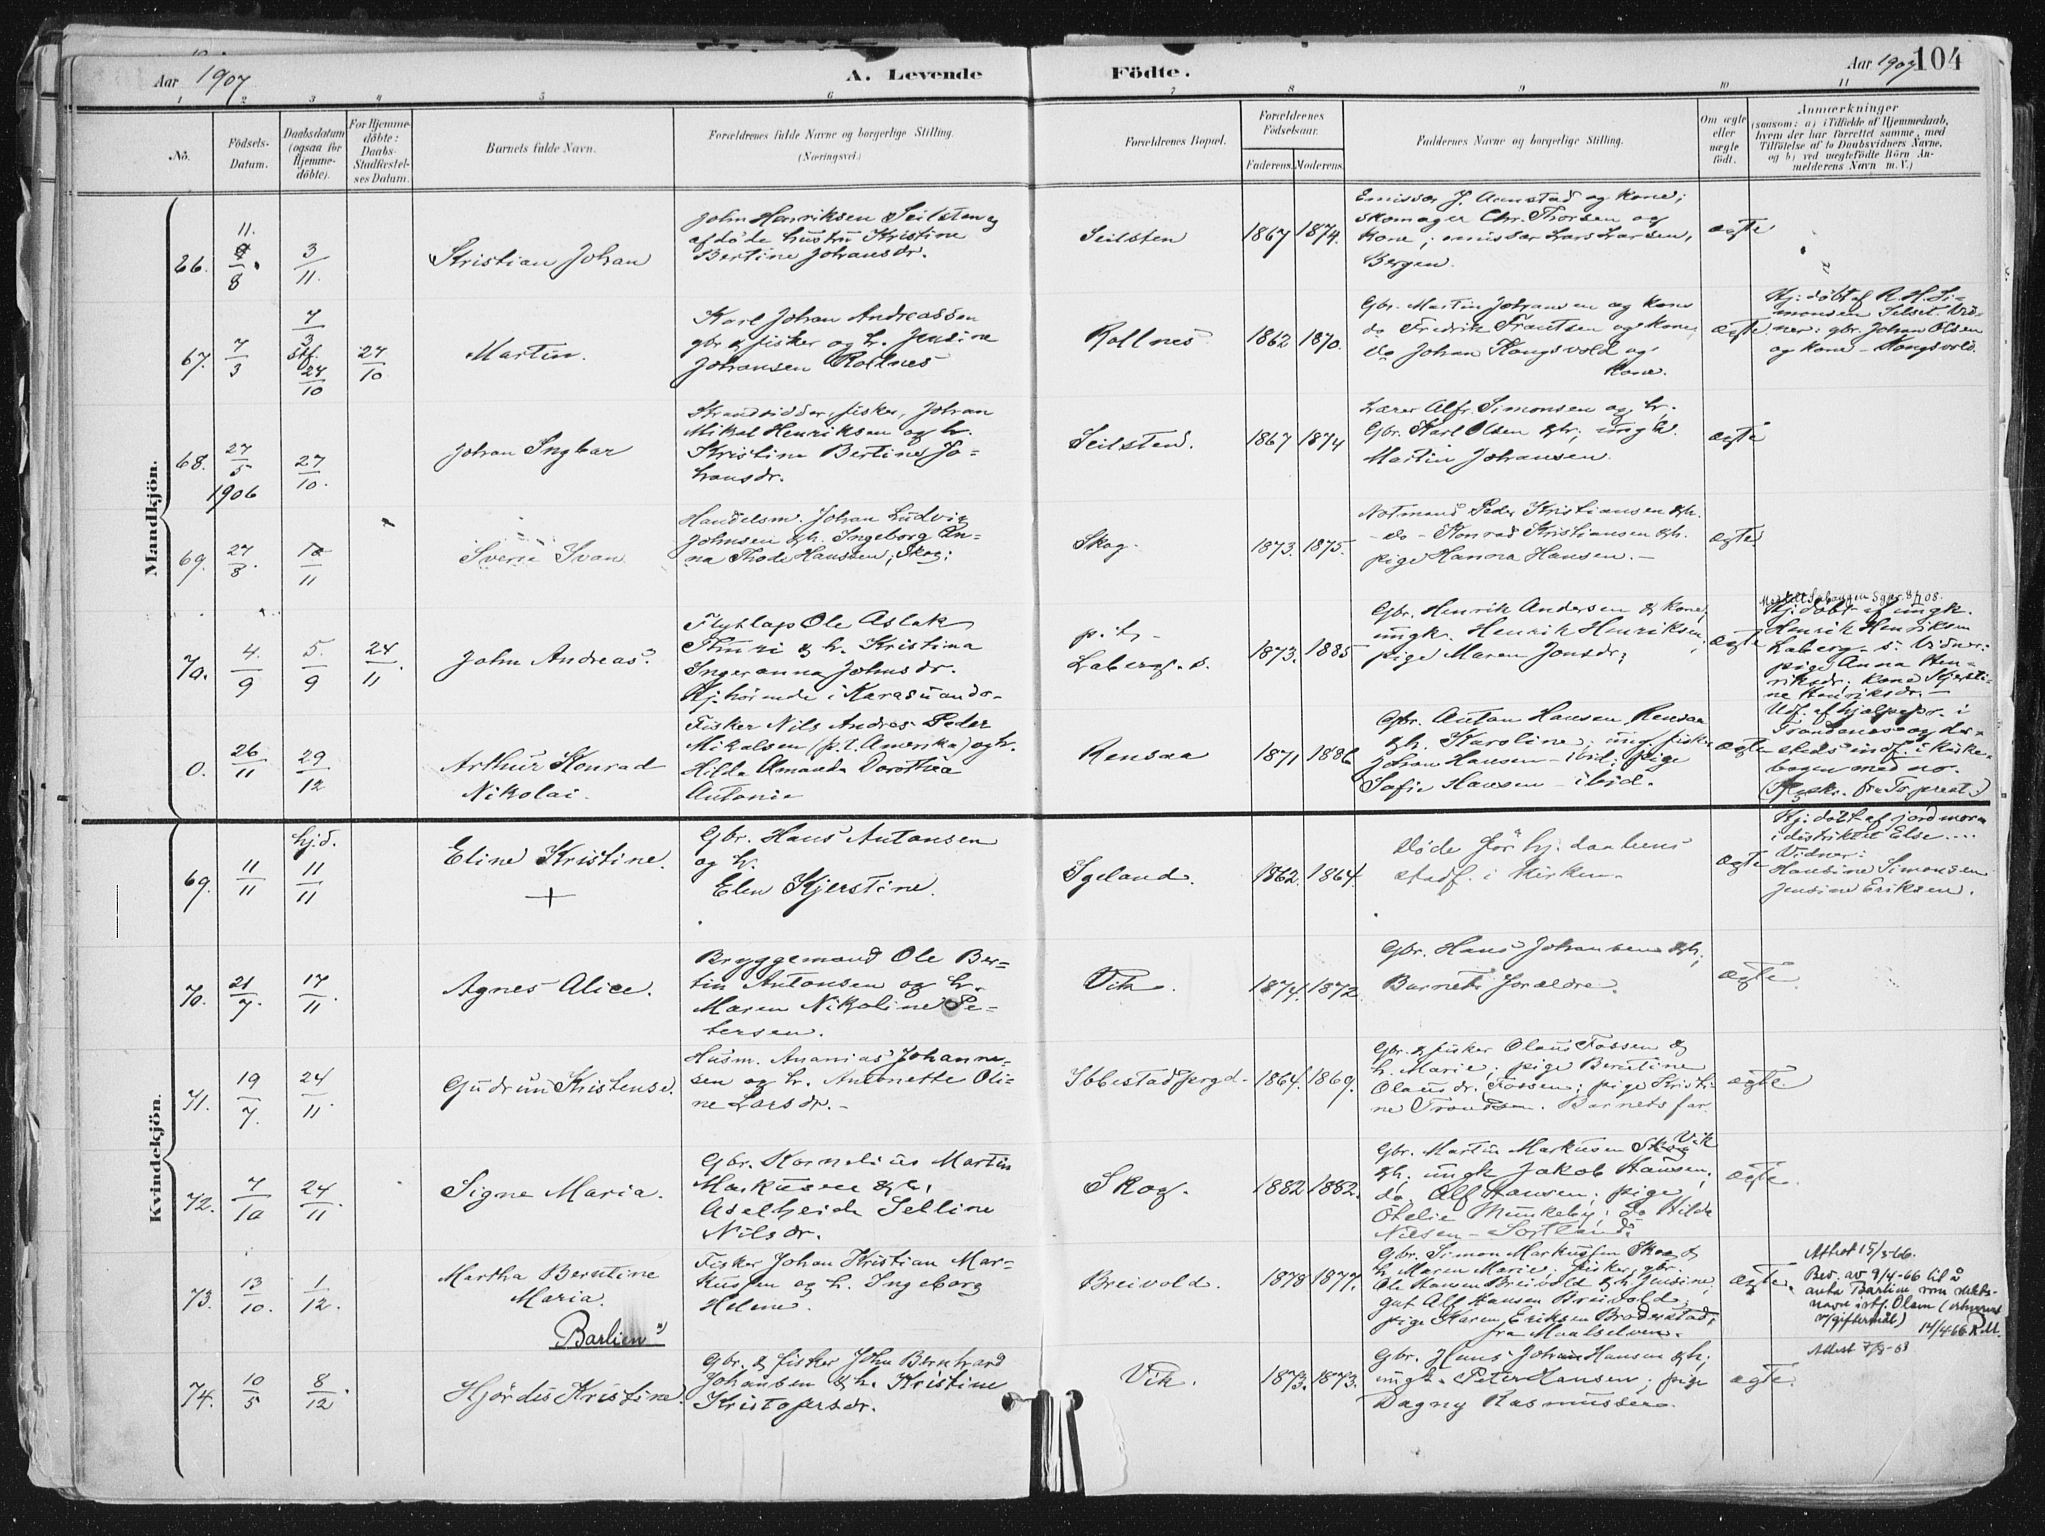 Aar 1907
A. Levende Födte.
Aar 1907
104
1 2 3 4 5 6 7 8 9 10 11
No.
Födsels-Datum.
Daabsdatum (ogsaa for Hjemme-døbte).
For Hjemme-døbte: Daabs-Stadfæstel-ses Datum.
Barnets fulde Navn.
Forældrenes fulde Navne og borgerlige Stilling.
(Næringsvei.)
Forældrenes Bopæl.
Forældrenes Födselsaar.
Faderens. Moderens.
Faddernes Navne og borgerlige Stilling.
Om ægte eller uægte født.
Anmærkninger
(saasom: a) i Tilfælde af Hjemmedaab,
hvem der har forrettet samme, med
Tilføielse af to Daabsvidners Navne,
og b) ved uægtefödte Börn An-
melderens Navn m. V.)
Mandkjön.
66. 11/8 3/11
Kristian Johan
John Henriksen Seilsten og
afdøde hustru Kristine
Bertine Johansdr.
Seilsten
1867 1874.
Emissær J. Aunstad og kone;
skomager Chr. Thorsen og
kone; emissær Lars Larsen,
Bergen.
ægte
67. 7/3 7/3 stf. 27/10 27/10
Martin.
Karl Johan Andreassen
gbr & fisker og h. Jensine
Johansen Rollnes
Rollnes
1862 1870.
Gbr. Martin Johansen og kone
do Fredrik Frantsen og kone,
do Johan Kongsvold og
kone.
ægte
Hj: døbt af R.H. Si-
monsen Selset. Vid-
ner: gbr. Johan Olsen
og kone – Kongsvold.
68. 27/5 1906 27/10.
Johan Ingvar
Strandsidder, fisker, Johan
Mikal Henriksen og h.
Kristine Bertine Jo-
hansdr.
Seilsten.
1867 1874
Lærer Alfr. Simonsen og h.
Gbr. Karl Olsen & h; ungk.
Martin Johansen.
ægte
69. 27/8. 10/11
Sverre Ivan
Handelsm. Johan Ludvig
Johnsen & h. Ingeborg An-
na Thode Hanssen; Skog;
Skog.
1873. 1875.
Notmand Peder Kristiansen & h.
- do - Konrad Kristiansen & h.
pige Hanna Hansen. –
ægte.
70. 4./9 5./9 24/11.
John Andreas.
Flytlap Ole Aslak
Thuri & h. Kristina
Ingeranna Johnsdr.
Hj: hørende i Karesuando.
p. t. –
Laberg. s.
1873. 1885
Gbr. Henrik Andersen & kone,
ungk. Henrik Henriksen,
pige Maren Jonsdr;
ægte
Hj: døbt af ungk.
Henrik Henriksen
Laberg. s. Vidner:
pige Anna Hen-
riksdr. kone Kjersti-
ne Henriksdr. –
0. 26/11 29/12
Arthur Konrad
Nikolai.
Fisker Nils Andreas Peder
Mikalsen (p.t. Amerika) og h.
Hilda Amanda Dorothea
Antonie
Rensaa
1871 1886
Gbr. Anton Hansen, Rensaa
& h. Karoline; ung. fisker
Johan Hansen – ibid; pige
Sofie Hansen – ibid.
ægte
Udf. af hjælpepr. i
Trondenes og der-
steds indf. i kirke-
bogen med no.
Kvindekjön.
69. 11/11 hj.d. 11/11
Eline Kristine.
+
Gbr. Hans Antonsen
og h.
Elen Kjerstine.
Igeland.
1862. 1864.
Døde før hj. daabens
stadf. i kirken.
ægte
Hj: døbt af jordmor
i distriktet Else ....
Vidner:
Hansine Simonsen
Jensine Eriksen.
70. 21/7. 17/11.
Agnes Alice.
Bryggemand Ole Ber-
tin Antonsen og h.
Maren Nikoline Pe-
tersen.
Vik.
1874. 1872
Gbr. Hans Johansen & h,
Barnets forældre.
ægte
71. 19/7. 24/11.
Gudrun Kristense.
Husm. Ananias Johanne-
sen og h. Antonette Oli-
ne Larsdr. –
Ibbestad fjergd.
1864. 1869.
Gbr. & fisker Olaus Fossen &
h. Marie; pige Berntine
Olausdr. Fossen; pige Kristi-
ne Trondsen. Barnets far.
ægte
72. 7/10 24/11.
Signe Maria.
Gbr. Kornelius Martin
Markusen & h.
Aselheide Selline
Nilsdr.
Skog.
1882 1882.
Gbr. Martin Markusen Vik
& h, ungk Jakob Hansen;
do. Alf Hansen; pige
Otelie Munkeby; do Hilda
Nilsen – Sortland.
ægte.
73. 13/10. 1/12.
Martha Berntine
Maria.
Barlien"
Fisker Johan Kristian Mar-
kusen og h. Ingeborg
Helene.
Breivold.
1878 1877.
Gbr. Simon Markussen Skog &
h. Maren Marie; fisker, gbr.
Ole Hansen Breivold & h Jensine;
gut Alf Hansen Breivold;
pige Karen Eriksen Broderstad,
fra Maalselven.
ægte.
Attest 15/3-66.
Bev. av 9/4-66 til å
anta Barlien som slekts-
navn istf. Olsen (erhvervet
v/giftermål)
14/4 66 R.M.
Attest 7/8-68
74. 10/5 8/12.
Hjördis Kristine.
Gbr. & fisker John Berntrard
Johansen & h. Kristine
Kristofersdr.
Vik.
1873. 1873.
Gbr. Hans Johan Hansen & h;
ungk. Peter Hansen; pige
Dagny Rasmussen.
ægte.